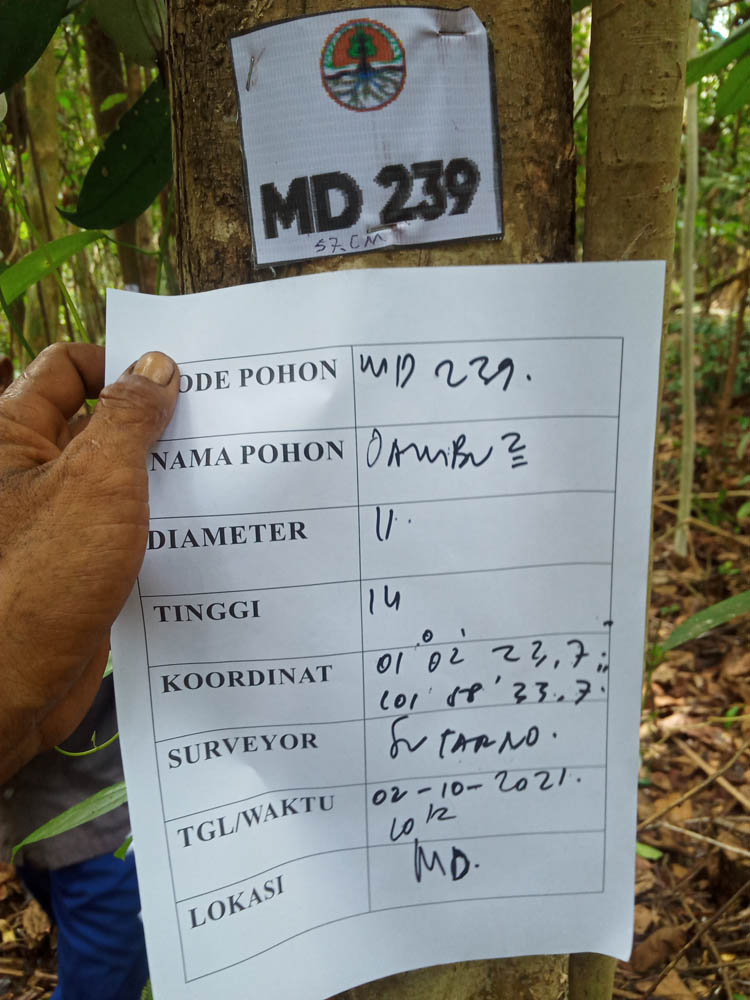 MD 239
57.CM
ODE POHON MD 239.
NAMA POHON
DIAMETER 11.
TINGGI 14
KOORDINAT 01° 02' 23,7"
101° 58' 33.7"
SURVEYOR SUTARNO.
TGL/WAKTU 02-10-2021.
LOKASI MD.